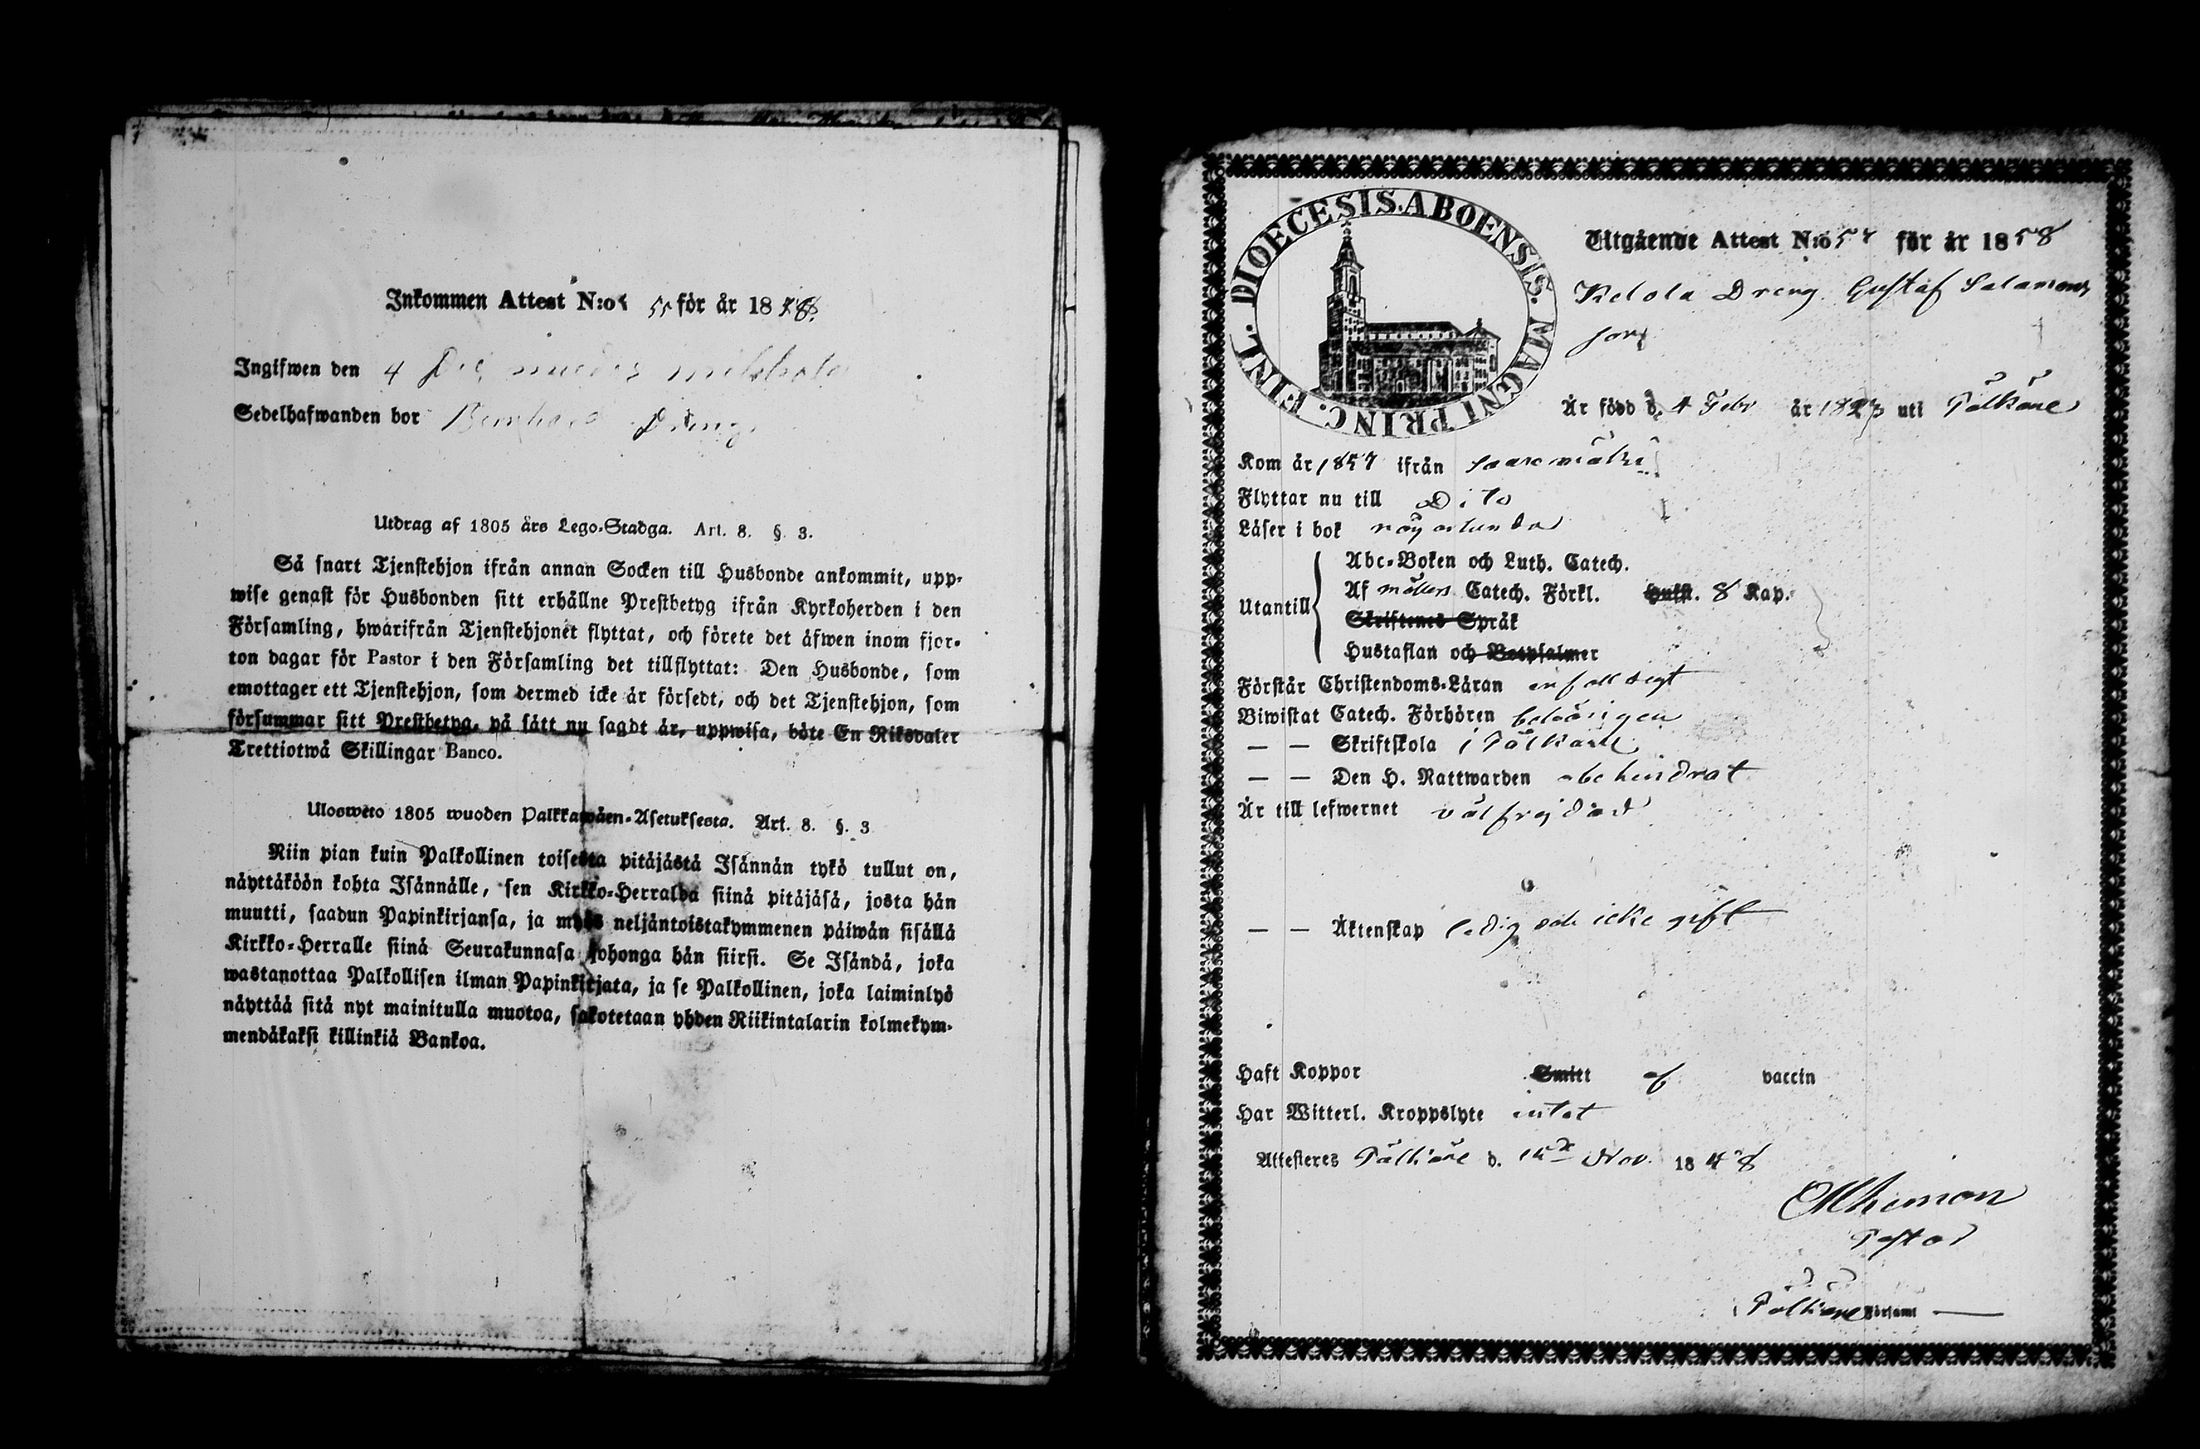 Inkommen Attest N:o 55 för år 1858.
Ingifwen den 4
Sedelhafwanden bor Dreng
Utdrag af 1805 års Lego-Stadga. Art. 8. §. 3.
Så snart Tjenstehjon ifrån annan Socken till Husbonde ankommit, upp-
wise genast för Husbonden sitt erhållne Prestbetyg ifrån Kyrkoherden i den
Församling, hwarifrån Tjenstehjonet flyttat, och förete det äfwen inom fjor-
ton dagar för Pastor i den Församling det tillflyttat: Den Husbonde, som
emottager ett Tjenstehjon, som dermed icke är försedt, och det Tjenstehjon, som
försummar sitt Prestbetyg, på sätt nu sagdt är, uppwisa, böte En Riksdaler
Trettiotwå Skillingar Banco.
Ulosweto 1805 wuoden Palkkawäen-Asetuksesta. Art. 8. §. 3
Niin pian kuin Palkollinen toisesta pitäjästä Isännän tykö tullut on,
näyttäköön kohta Isännälle, sen Kirkko-Herralda siinä pitäjäsä, josta hän
muutti, saadun Papinkirjansa, ja myös neljäntoistakymmenen päiwän sisällä
Kirkko-Herralle siinä Seurakunnasa johonga hän siirsi. Se Isändä, joka
wastanottaa Palkollisen ilman Papinkirjata, ja se Palkollinen, joka laiminlyö
näyttää sitä nyt mainitulla muotoa, sakotetaan yhden Riikintalarin kolmekym-
mendäkaksi killinkiä Bankoa.
DIOECESIS. ABOENSIS. MAGNI PRINC. FINL.
Utgående Attest N:o 57 för år 1858
Kelola Dreng Gustaf Salamons
son
Är född d. 4 Febr år 1823 uti Pälkäne
Kom år 1857 ifrån Saaremäki
Flyttar nu till Dito
Läser i bok nöjaktunda
Utantill
Abc-Boken och Luth. Catech.
Af möllers Catech. Förkl. Hufst. 8 Kap.
Skriftenes Språk
Hustaflan och Botpsalmer
Förstår Christendoms-Läran enfalldigt
Biwistat Catech. Förhören behörigen
— — Skriftskola i Pälkäne
— — Den H. Nattwarden obehindrat
Är till lefwernet välfrejdad
— — Äktenskap ledig och icke gift
Haft Koppor Smitt af vaccin
Har Witterl. Kroppslyte intet
Attesteres Pälkäne d. Nov. 1848
Pastor
i Pälkäne Församl